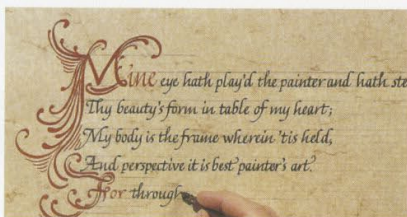 Mine eye hath play'd the painter and hath ste
Thy beauty's form in table of my heart;
My body is the frame wherein 'tis held,
And perspective it is best painter's art.
For through